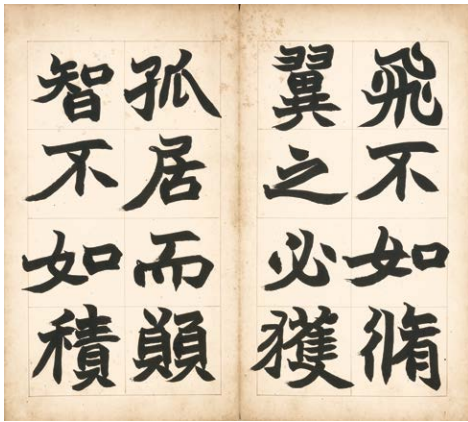 飛不如脩
翼之必獲
孤居而願
智不如積